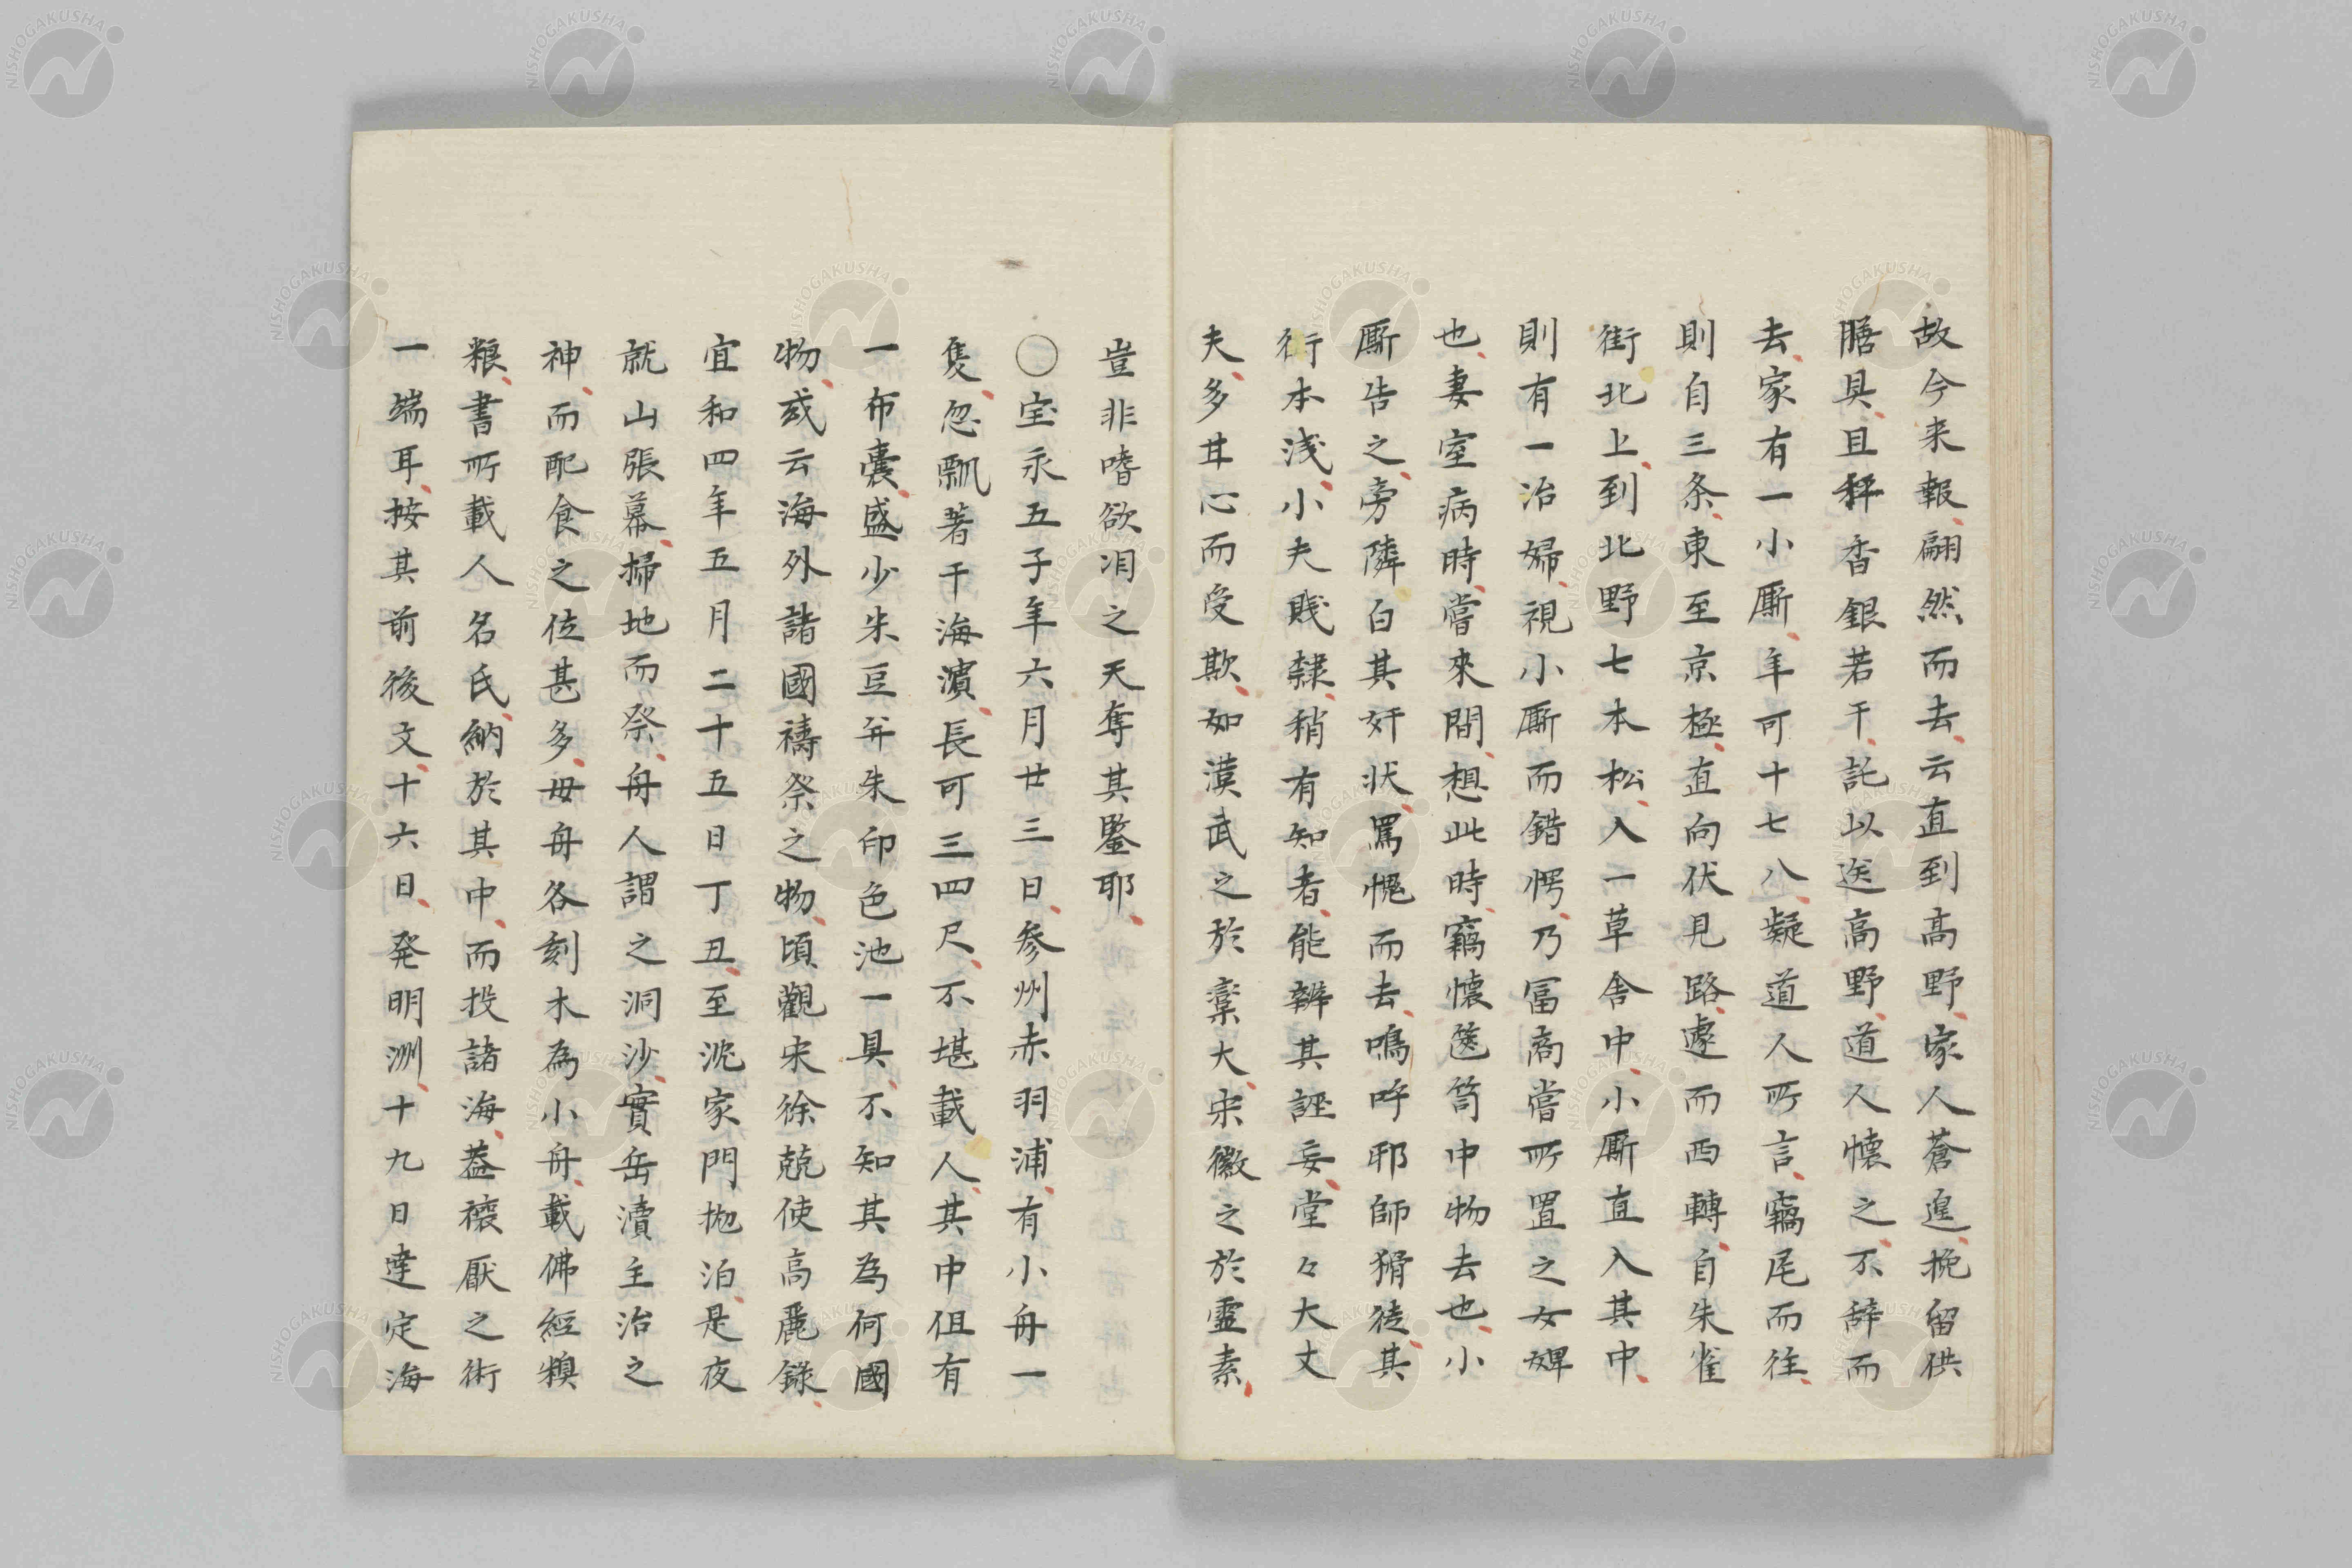 故今来報翩然而去云直到高野家人蒼遑挽留供
膳具且秤香銀若干託以送高野道人懐之不辞而
去家有一小厮年可十七八疑道人所言竊尾而往
則自三条東至京極直向伏見路遽而西轉自朱雀
街北上到北野七本松入一草舎中小厮直入其中
則有一冶婦視小厮而錯愕乃冨商嘗所置之女婢
也妻室病時嘗來間想此時竊懐篋笥中物去也小
厮告之旁隣白其奸状罵愧而去鳴呼邪師猾徒其
衒本浅小夫賎隸稍有知者能辨其誣妄堂々大丈
夫多甘心而受欺如漢武之於欒大宋徽之於霊素
豈非嗜欲泪之天奪其鑒耶
〇宝永五子年六月廿三日参州赤羽浦有小舟一
隻忽飄著干海濵長可三四尺不堪載人其中但有
一布嚢盛少米豆并朱印色池一具不知其為何國
物或云海外諸國禱祭之物頃觀宋徐兢使高麗録
宜和四年五月二十五日丁丑至沈家門抛泊是夜
就山張幕掃地而祭舟人謂之洞沙實岳瀆主治之
神而配食之位甚多毎舟各刻木為小舟載佛經糗
粮書所載人名氏納於其中而投諸海葢禳厭之術
一端耳按其前後文十六日発明洲十九日達定海